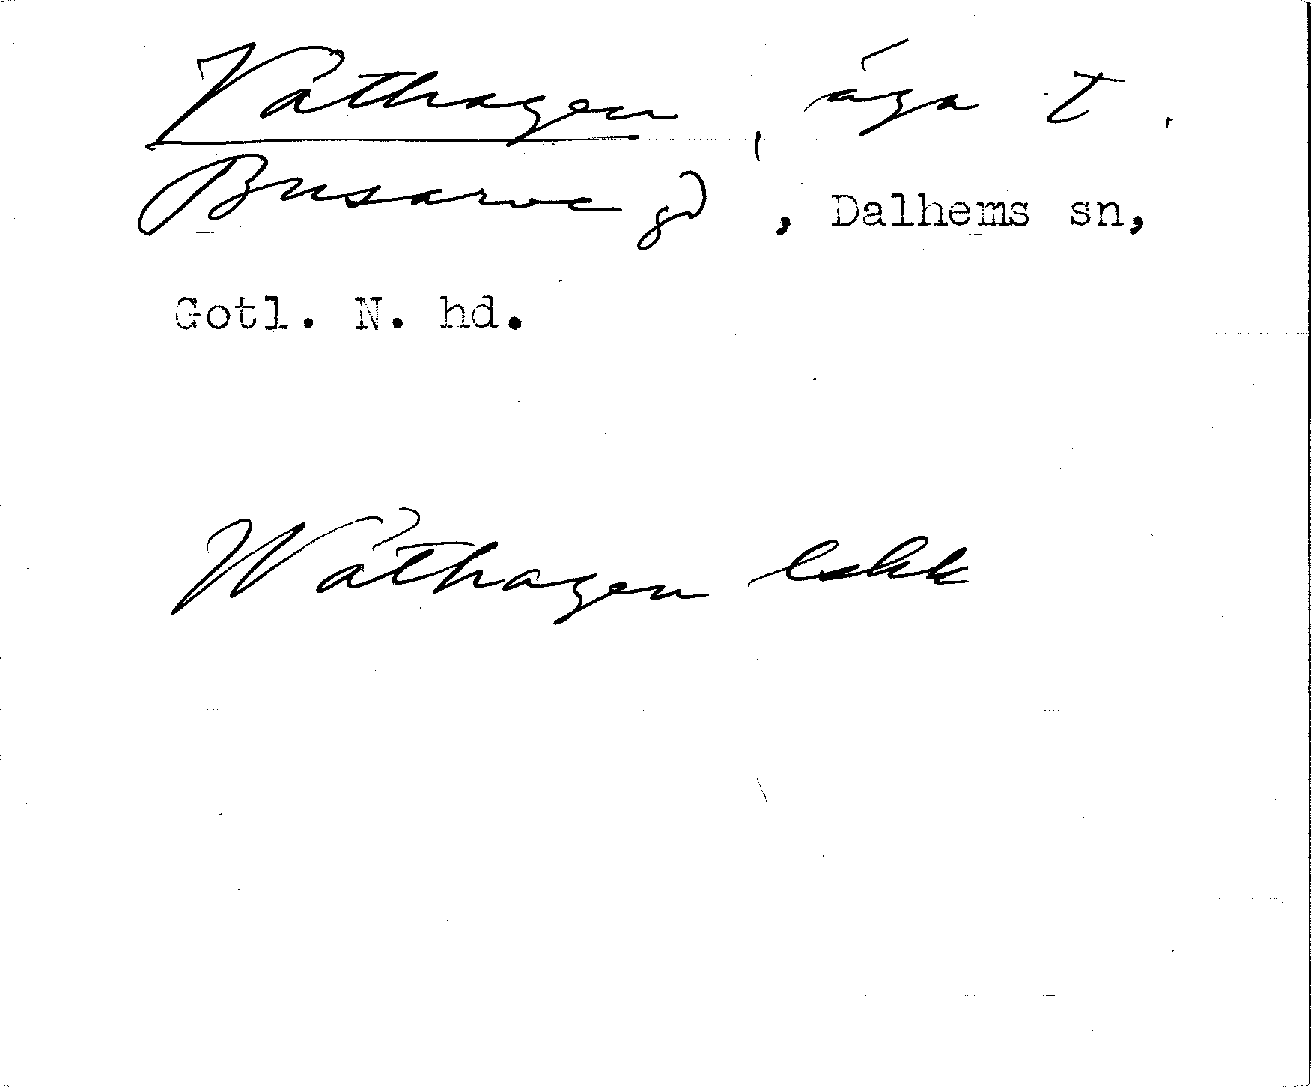 Våthagen, äga t.
Busarve gd, Dalhems sn,
Gotl. N. hd.
Wåthagen